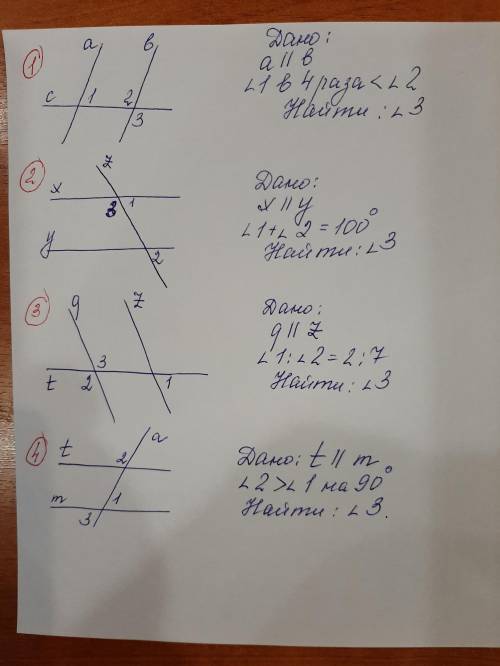 1
a b
c 1 2
3
Дано:
a || b
∠1 в 4 раза < ∠2
Найти: ∠3
2
z
x
3 1
y
2
Дано:
x || y
∠1+∠2=100°
Найти: ∠3
3
g z
3
t 2 1
Дано:
g || z
∠1:∠2=2:7
Найти: ∠3
4
a
t 2
m 1
3
Дано: t || m
∠2>∠1 на 90°
Найти: ∠3.